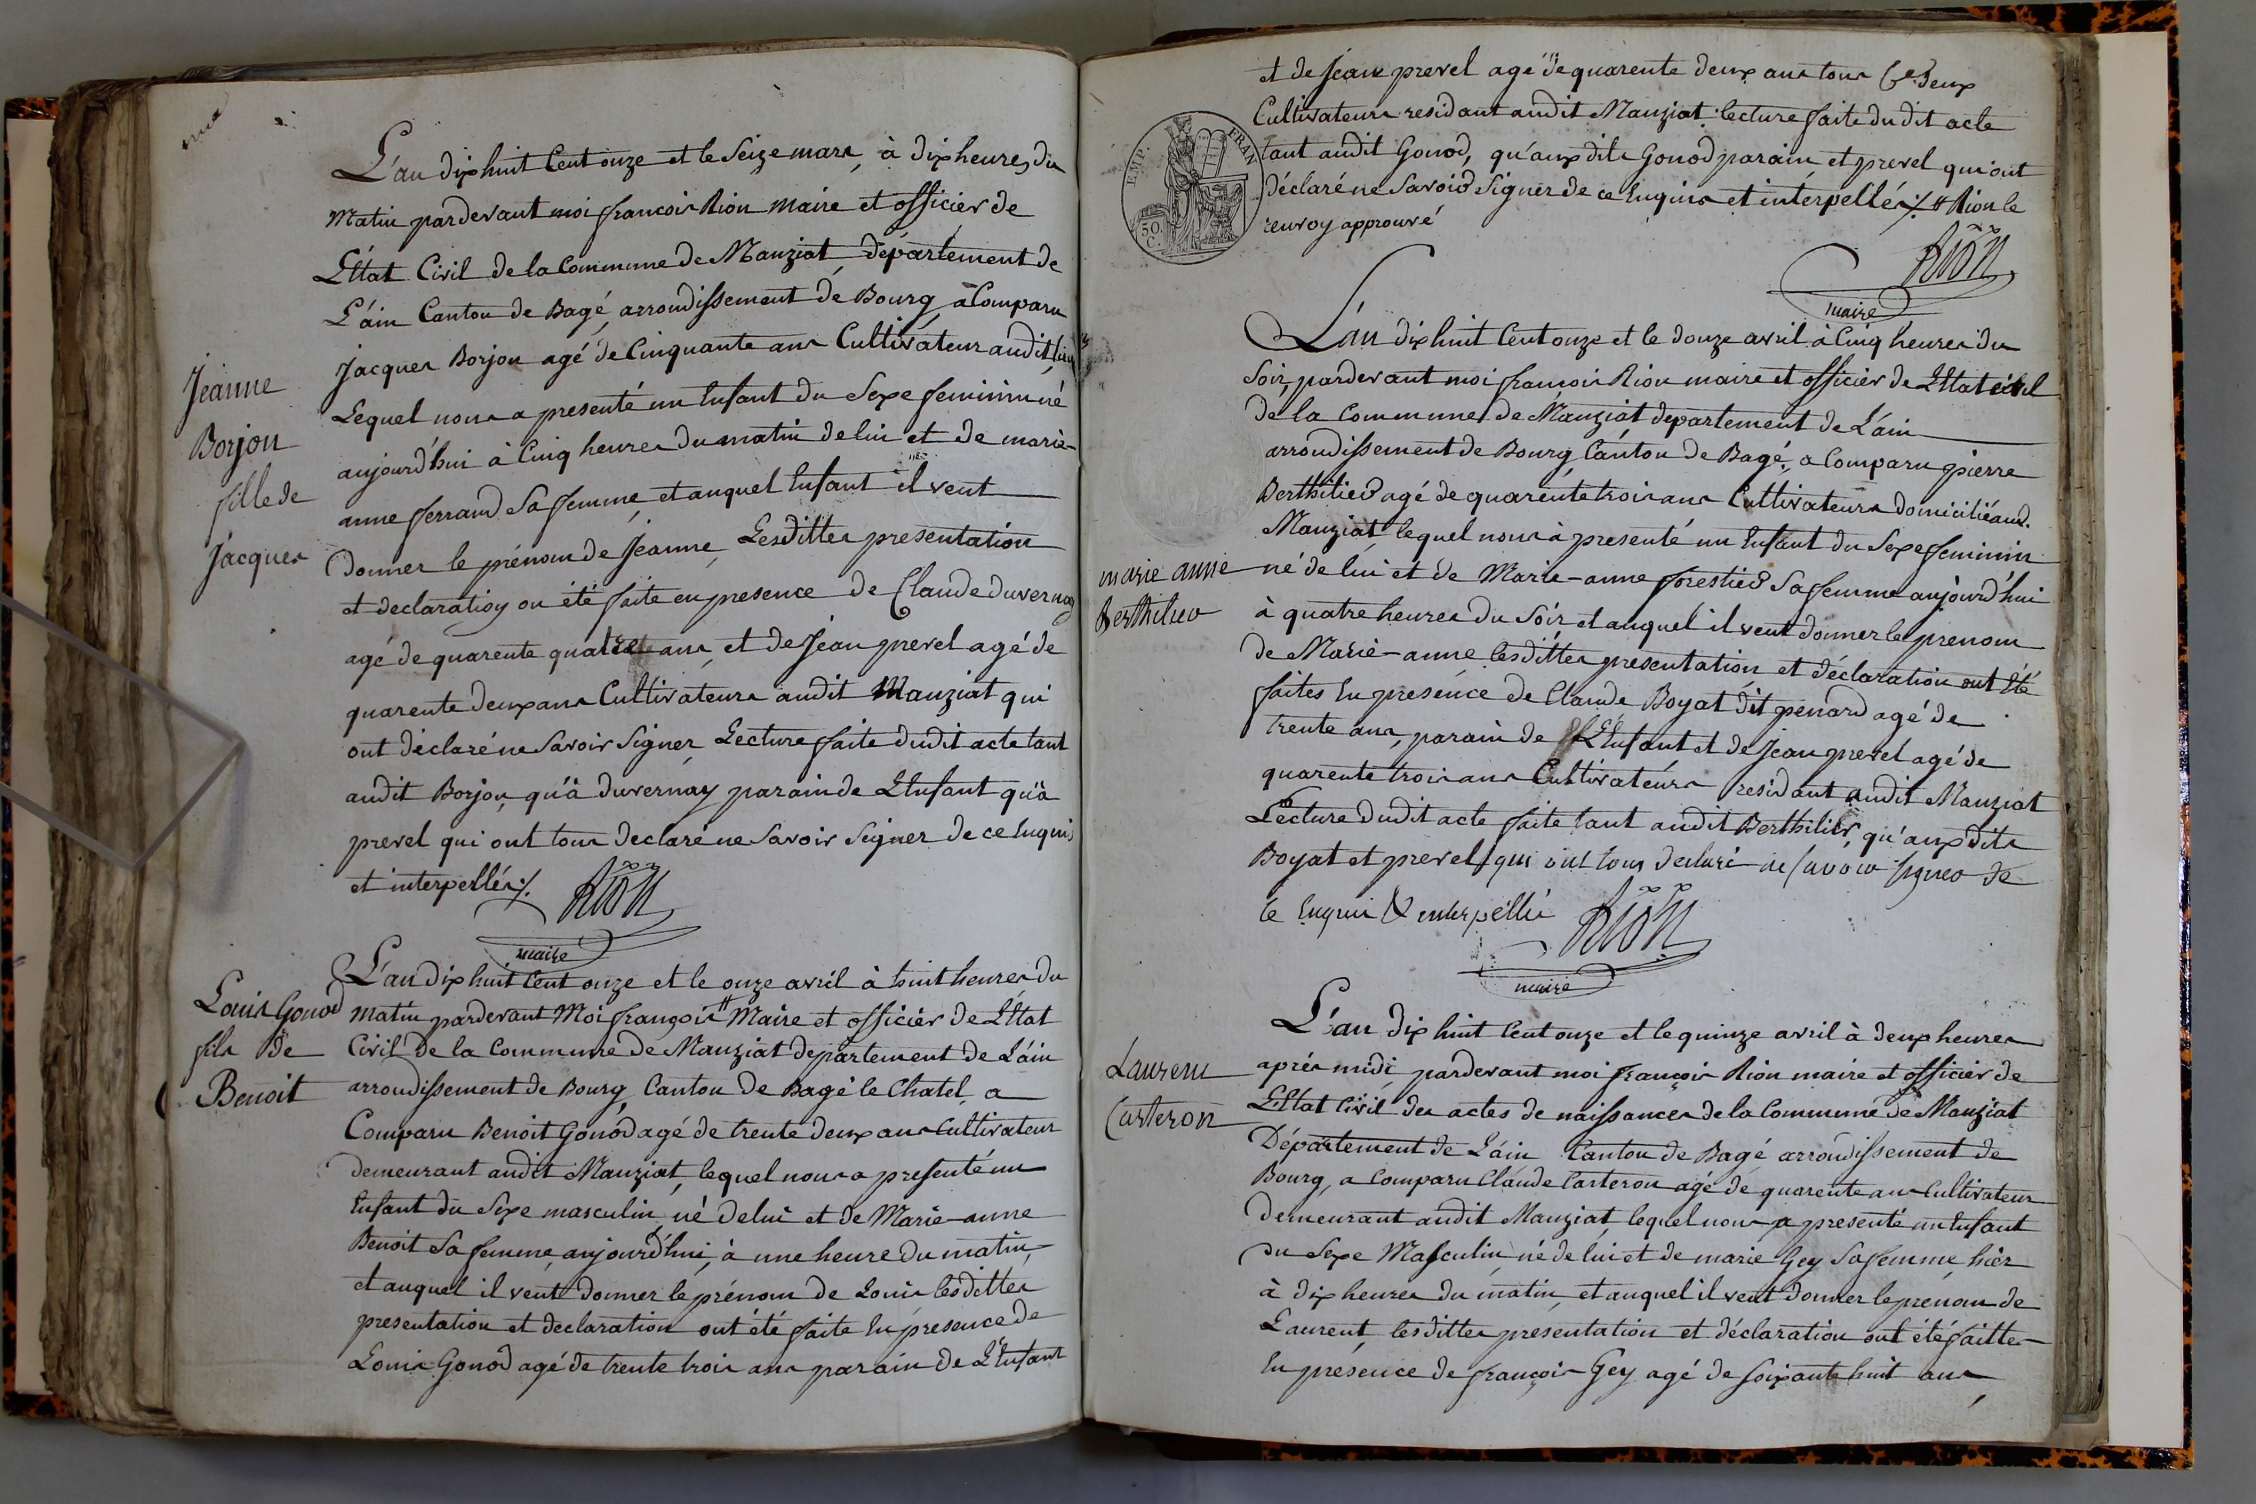 L'an dix huit Cent onze et le Seize mars, à dix heures du
Matin pardevant moi francois Rion Maire et officier de
L'État Civil de la Commune de Manziat, Département de
L'ain Canton de Bagé, arrondissement de Bourg, a Comparu
Jacques Borjon agé de Cinquante ans Cultivateur audit lieu
Lequel nous a presenté un Enfant du Sexe feminin né
aujourd'hui à Cinq heures du matin de lui et de marie-
anne ferrand Sa femme, et auquel Enfant il veut
donner le prénom de Jeanne, Lesdittes presentation
et declaration on été faite en presence de Claude duvernay
agé de quarente quatre ans, et de Jean prevel agé de
quarente deux ans Cultivateurs audit Manziat qui
ont déclaré ne Savoir Signer Lecture faite dudit acte tant
audit Borjon, qu'à duvernay parain de L'Enfant qu'à
prevel qui ont tous declaré ne Savoir Seigner de ce Enquis
et interpellés /.
Rion
maire
Jeanne
Borjon
fille de
Jacques
L'an dix huit Cent onze et le onze avril à huit heures du
matin pardevant Moi françois # Maire et officier de L'Etat
Civil de la Commune de Manziat departement de L'ain
arrondissement de Bourg, Canton de Bagé le Chatel, a
Comparu Benoit Gonod agé de trente deux ans Cultivateur
demeurant audit Manziat, lequel nous a presenté un
Enfant du Sexe masculin, né de lui et de Marie-anne
Benoit Sa femme, aujourd'hui, à une heure du matin,
et auquel il veut donner le prénom de Louis lesdittes
presentation et declaration ont été faite En presence de
Louis Gonod agé de trente trois ans parain de L'Enfant
Louis Gonod
fils de
Benoit
et de Jean prevel agé de quarente deux ans tous les deux
Cultivateurs residant audit Manziat. lecture faite dudit acte
tant audit Gonod, qu'aux dits Gonod parain et prevel qui ont
déclaré ne Savoir Signer de ce Enquis et interpellés /. # Rion le
renvoy approuvé
EMP. FRAN
50.
C.
Rion
maire
L'an dix huit Cent onze et le douze avril à Cinq heures du
Soir, pardevant moi francois Rion maire et officier de L'Etat civil
de la Commune de Manziat departement de L'ain
arrondissement de Bourg, Canton de Bagé, a Comparu pierre
Berthilier agé de quarente trois ans Cultivateurs domicilié aud.
Manziat, lequel nous à presenté un Enfant du Sexe feminin
né de lui et de Marie-anne forestier Sa femme aujourd'hui
à quatre heures du Soir et auquel il veut donner le prenom
de Marie-anne lesdittes presentation et déclaration ont été
faites En presence de Claude Boyat dit penard agé de
trente ans, parain de L'Enfant et de Jean prevel agé de
quarente trois ans Cultivateurs residant audit Manziat
Lecture dudit acte faite tant audit Berthilier, qu'aux dits
Boyat et prevel qui ont tous declaré ne savoir signer de
ce Enquis & interpellé
Rion
maire
marie anne
Berthilier
L'an dix huit Cent onze et le quinze avril à deux heures
après midi pardevant moi françois Rion maire et officier de
L'Etat Civil des actes de naissances de la Commune de Manziat
Département de L'ain Canton de Bagé arrondissement de
Bourg, a Comparu Claude Carteron agé de quarente ans Cultivateur
demeurant audit Manziat, lequel nous a presenté un Enfant
du Sexe Masculin, né de lui et de marie Gey Sa femme, hier
à dix heures du matin, et auquel il veut donner le prénom de
Laurent, lesdittes presentation et déclaration ont été faittes
En présence de françois Gey agé de Soixante huit ans,
Laurent
Carteron